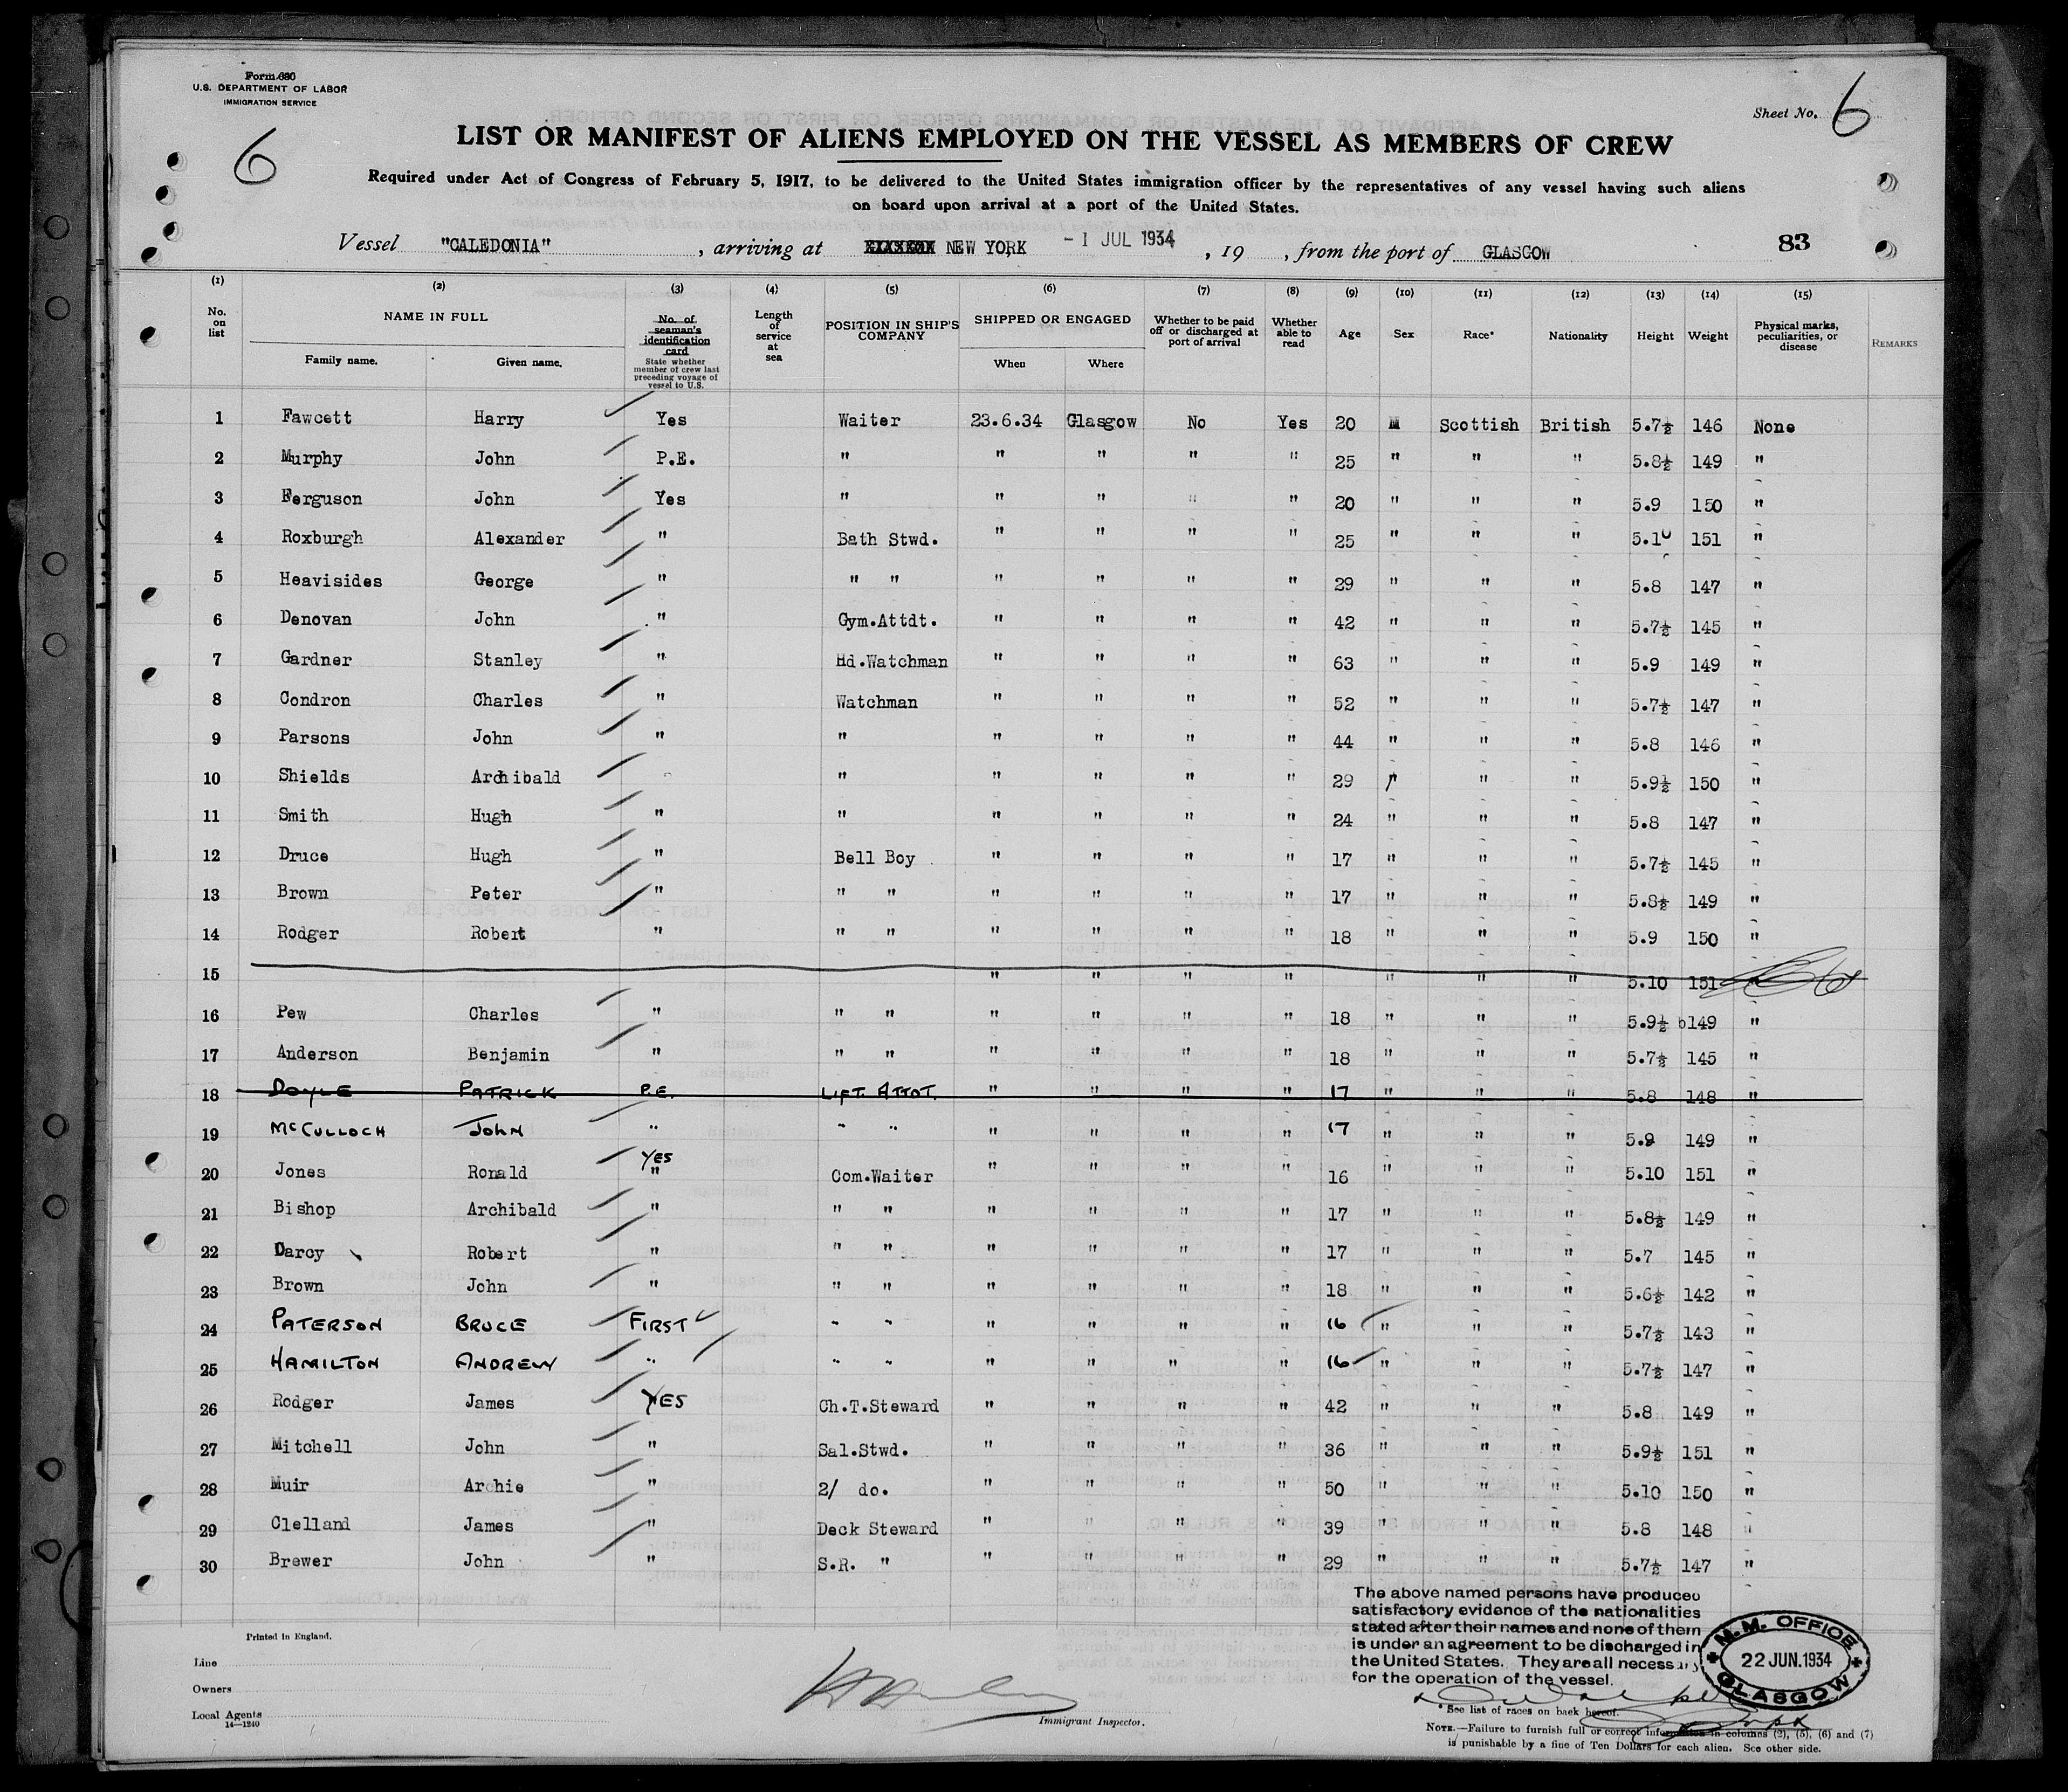 Form 680
U.S. DEPARTMENT OF LABOR
IMMIGRATION SERVICE
Sheet No. 6
6
LIST OR MANIFEST OF ALIENS EMPLOYED ON THE VESSEL AS MEMBERS OF CREW
Required under Act of Congress of February 5, 1917, to be delivered to the United States immigration officer by the representatives of any vessel having such aliens
on board upon arrival at a port of the United States.
Vessel "CALEDONIA", arriving at NEW YORK -1 JUL 1934, 19 , from the port of GLASGOW 83
(1) (2) (3) (4) (5) (6) (7) (8) (9) (10) (11) (12) (13) (14) (15)
No. on list NAME IN FULL Family name. Given name. No. of seaman's identification card State whether member of crew last preceding voyage of vessel to U.S. Length of service at sea POSITION IN SHIP'S COMPANY SHIPPED OR ENGAGED When Where Whether to be paid off or discharged at port of arrival Whether able to read Age Sex Race* Nationality Height Weight Physical marks, peculiarities, or disease REMARKS
1 Fawcett Harry Yes Waiter 23.6.34 Glasgow No Yes 20 M Scottish British 5.7½ 146 None
2 Murphy John P.E. " " " " " 25 " " " 5.8½ 149 "
3 Ferguson John Yes " " " " " 20 " " " 5.9 150 "
4 Roxburgh Alexander " Bath Stwd. " " " " 25 " " " 5.10 151 "
5 Heavisides George " " " " " " " 29 " " " 5.8 147 "
6 Denovan John " Gym.Attdt. " " " " 42 " " " 5.7½ 145 "
7 Gardner Stanley " Hd.Watchman " " " " 63 " " " 5.9 149 "
8 Condron Charles " Watchman " " " " 52 " " " 5.7½ 147 "
9 Parsons John " " " " " " 44 " " " 5.8 146 "
10 Shields Archibald " " " " " 29 " " 5.9½ 150 "
11 Smith Hugh " " " " " " 24 " " " 5.8 147 "
12 Druce Hugh " Bell Boy " " " " 17 " " " 5.7½ 145 "
13 Brown Peter " " " " " " " 17 " " " 5.8½ 149 "
14 Rodger Robert " " " " " " " 18 " " " 5.9 150 "
15 " " " " " " " 5.10 151
16 Pew Charles " " " " " " " 18 " " " 5.9½ 149 "
17 Anderson Benjamin " " " " " " " 18 " " " 5.7½ 145 "
18 DOYLE PATRICK P.E. LIFT. ATTDT. " " " " 17 " " " 5.8 148 "
19 McCULLOCH JOHN " " " " " " " 17 " " " 5.9 149 "
20 Jones Ronald YES " Com.Waiter " " " " 16 " " " 5.10 151 "
21 Bishop Archibald " " " " " " " 17 " " " 5.8½ 149 "
22 Darcy Robert " " " " " " " 17 " " " 5.7 145 "
23 Brown John " " " " " " " 18 " " " 5.6½ 142 "
24 PATERSON BRUCE FIRST " " " " " " 16 " " " 5.7½ 143 "
25 HAMILTON ANDREW " " " " " " " 16 " " " 5.7½ 147 "
26 Rodger James YES Ch.T.Steward " " " " 42 " " " 5.8 149 "
27 Mitchell John " Sal.Stwd. " " " " 36 " " " 5.9½ 151 "
28 Muir Archie " 2/ do. " " " " 50 " " " 5.10 150 "
29 Clelland James " Deck Steward " " " " 39 " " " 5.8 148 "
30 Brewer John " S.R. " " " " " 29 " " " 5.7½ 147 "
The above named persons have produced
satisfactory evidence of the nationalities
stated after their names and none of them
is under an agreement to be discharged in
the United States. They are all necessary
for the operation of the vessel.
M.M. OFFICE
22 JUN.1934
GLASGOW
Printed in England.
Line
Owners
Local Agents
14—1240
Immigrant Inspector.
*See list of races on back hereof.
NOTE.—Failure to furnish full or correct information in columns (2), (5), (6) and (7)
is punishable by a fine of Ten Dollars for each alien. See other side.